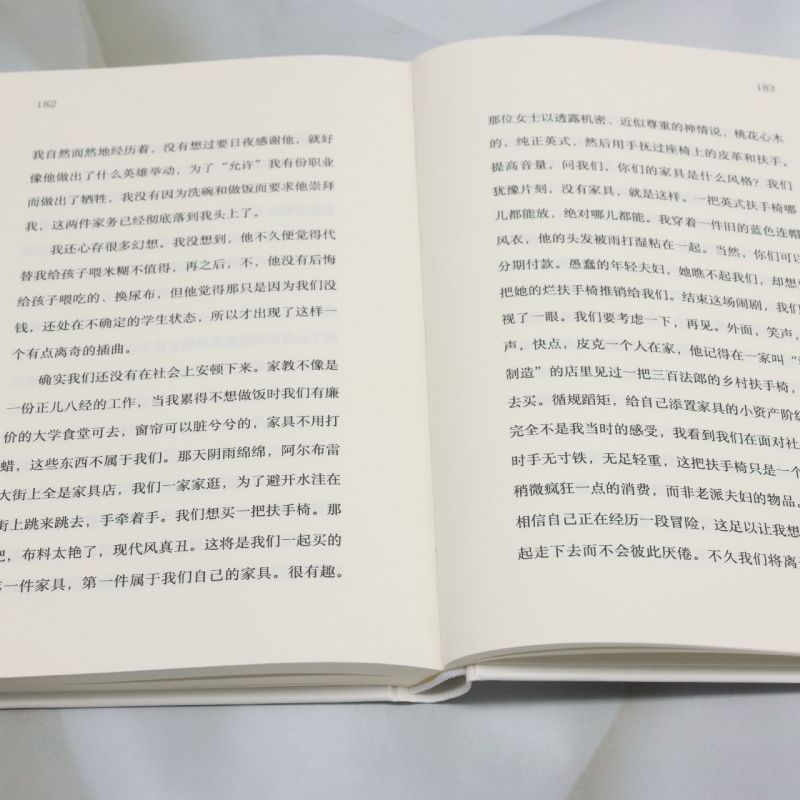 182
我自然而然地经历着，没有想过要日夜感谢他，就好
像他做出了什么英雄举动，为了“允许”我有份职业
而做出了牺牲，我没有因为洗碗和做饭而要求他崇拜
我，这两件家务已经彻底落到我头上了。
我还心存很多幻想。我没想到，他不久便觉得代
替我给孩子喂米糊不值得，再之后，不，他没有后悔
给孩子喂吃的、换尿布，但他觉得那只是因为我们没
钱，还处在不确定的学生状态，所以才出现了这样一
个有点离奇的插曲。
确实我们还没有在社会上安顿下来。家教不像是
一份正儿八经的工作，当我累得不想做饭时我们有廉
价的大学食堂可去，窗帘可以脏兮兮的，家具不用打
蜡，这些东西不属于我们。那天阴雨绵绵，阿尔布雷
大街上全是家具店，我们一家家逛，为了避开水洼在
街上跳来跳去，手牵着手。我们想买一把扶手椅。那
把，布料太艳了，现代风真丑。这将是我们一起买的
一件家具，第一件属于我们自己的家具。很有趣。
183
那位女士以透露机密、近似尊重的神情说，桃花心木
的，纯正英式，然后用手抚过座椅上的皮革和扶手。
提高音量，问我们，你们的家具是什么风格？我们
犹豫片刻，没有家具，就是这样。一把英式扶手椅哪
儿都能放，绝对哪儿都能。我穿着一件旧的蓝色连帽
风衣，他的头发被雨打湿粘在一起。当然，你们可以
分期付款。愚蠢的年轻夫妇，她瞧不起我们，却想
把她的烂扶手椅推销给我们。结束这场闹剧，我们
视了一眼。我们要考虑一下，再见。外面，笑声，
声，快点，皮克一个人在家，他记得在一家叫“
制造”的店里见过一把三百法郎的乡村扶手椅，
去买。循规蹈矩，给自己添置家具的小资产阶
完全不是我当时的感受，我看到我们在面对社
时手无寸铁，无足轻重，这把扶手椅只是一个
稍微疯狂一点的消费，而非老派夫妇的物品。
相信自己正在经历一段冒险，这足以让我想
起走下去而不会彼此厌倦。不久我们将离